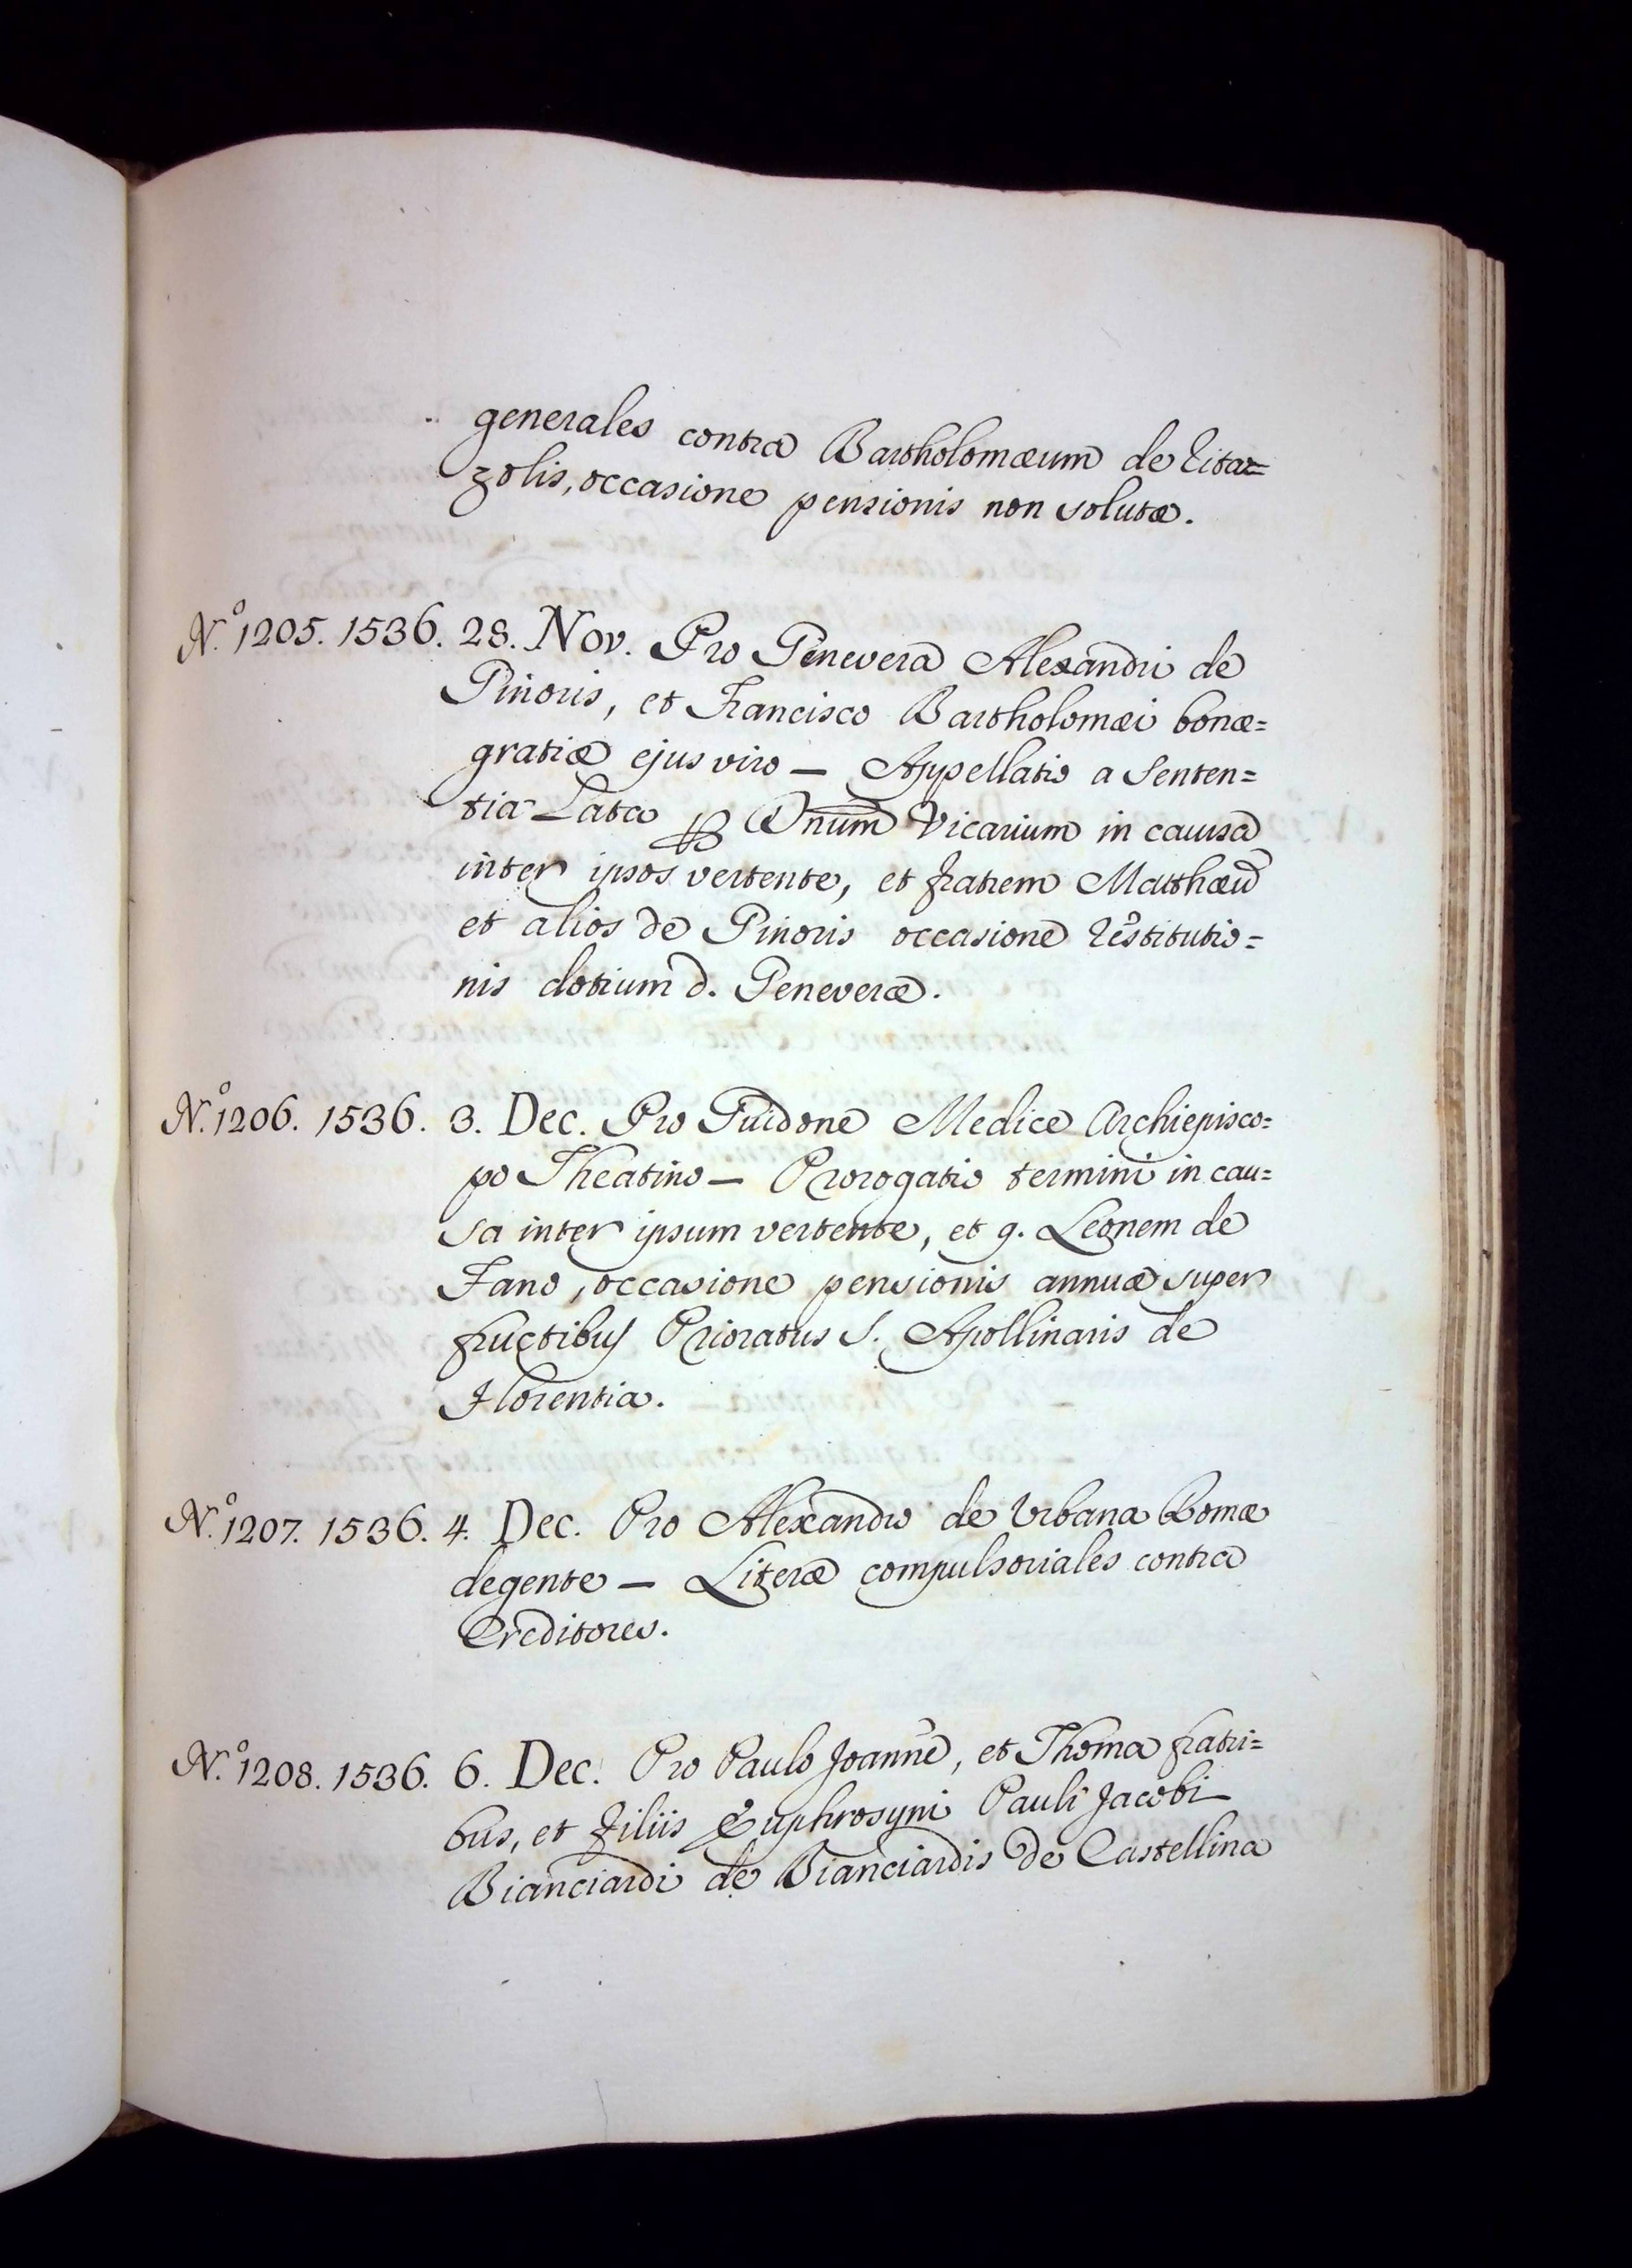 generales contra Bartholomæum de Ricar=
zolis, occasione pensionis non solutæ.
N.º 1205. 1536. 28. Nov. Pro Genevera Alexandri de
Ginoris, et Francisco Bartholomæi bonæ=
gratiæ ejus viro — Appellatio a Senten=
tia Lata Dnum Vicarium in causa
inter ipsos vertente, et fratrem Matthæū
et alios de Ginoris occasione restitutio=
nis dotium d. Geneveræ.
N.º 1206. 1536. 3. Dec. Pro Guidone Medice Archiepisco=
po Theatino — Prorogatio termini in cau=
sa inter ipsum vertente, et q. Leonem de
Fano, occasione pensionis annuæ super
fructibus Prioratus S. Apollinaris de
Florentia.
N.º 1207. 1536. 4. Dec. Pro Alexandro de Urbana Romæ
degente — Literæ compulsoriales contra
Creditores.
N.º 1208. 1536. 6. Dec. Pro Paulo Joanne, et Thoma fratri=
bus, et filiis Euphrosyni Pauli Jacobi
Bianciardi de Bianciardis de Castellina